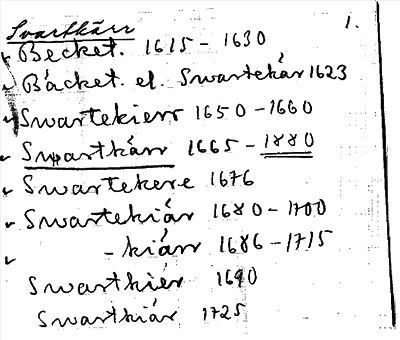 Svartkärr 1.
Becket. 1615 - 1630
Bäcket. el. Swartekär 1623
Swartekierr 1650 - 1660
Swartkärr 1665 - 1880
Swartekere 1676
Swartekiär 1680 - 1700
- kiärr 1686 - 1715
Swartkiér 1690
Swartkiär 1725